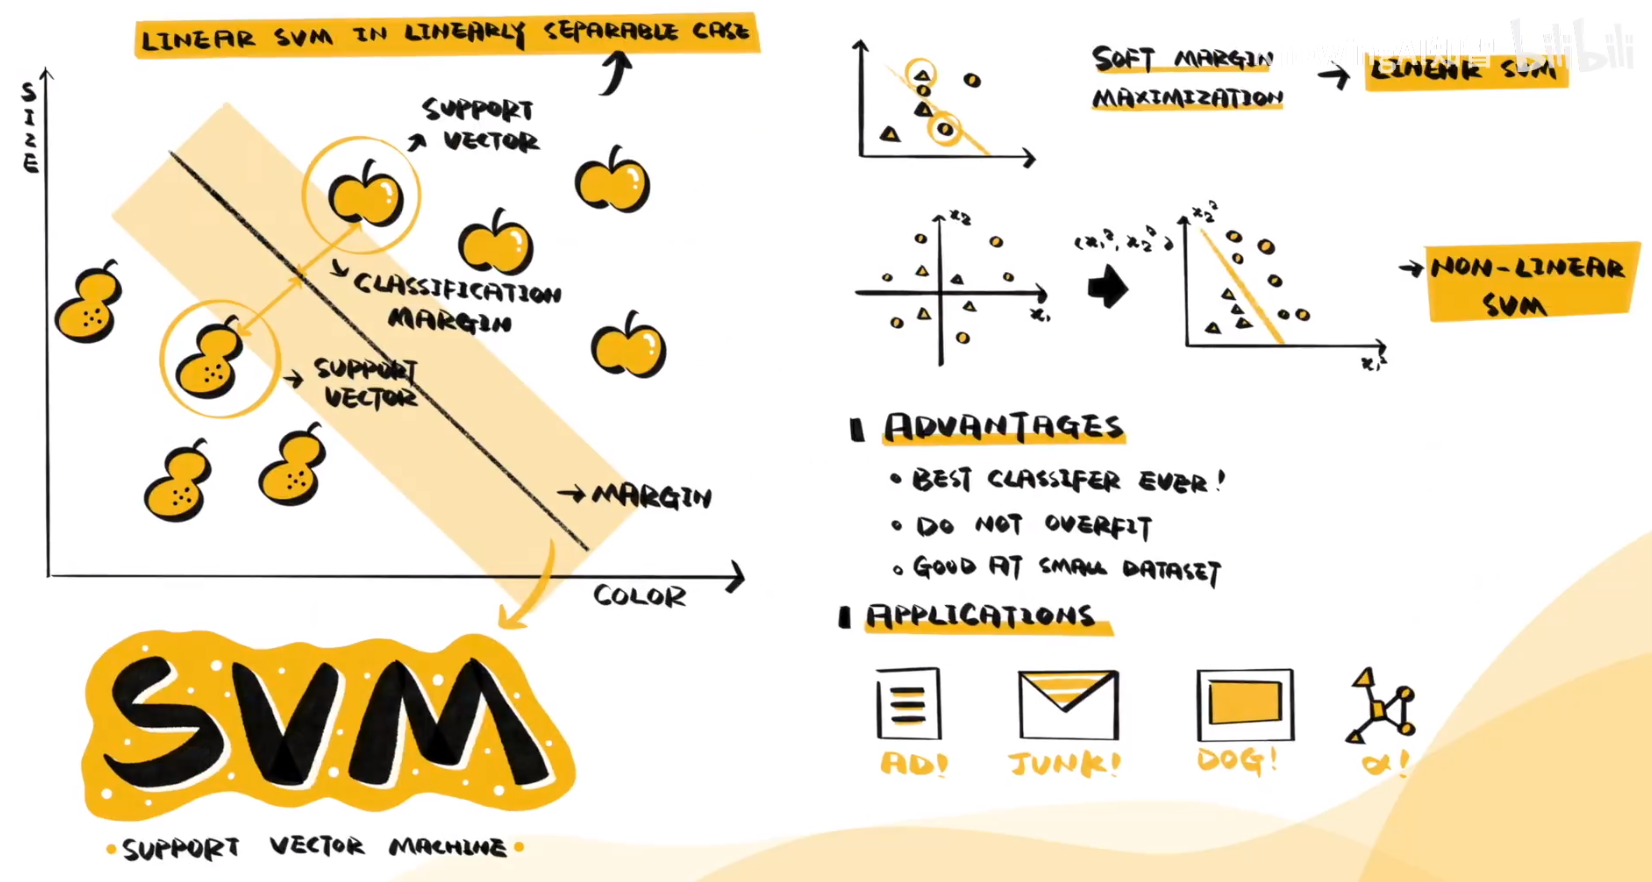 LINEAR SVM IN LINEARLY SEPARABLE CASE
SIZE
SUPPORT
VECTOR
CLASSIFICATION
MARGIN
SUPPORT
VECTOR
MARGIN
COLOR
SVM
SUPPORT VECTOR MACHINE
SOFT MARGIN
MAXIMIZATION
LINEAR SVM
bilibili
x₂
x₁
(x₁², x₂²)
x₂²
x₁²
NON-LINEAR
SVM
ADVANTAGES
• BEST CLASSIFER EVER!
• DO NOT OVERFIT
• GOOD AT SMALL DATASET
APPLICATIONS
AD!
JUNK!
DOG!
α!